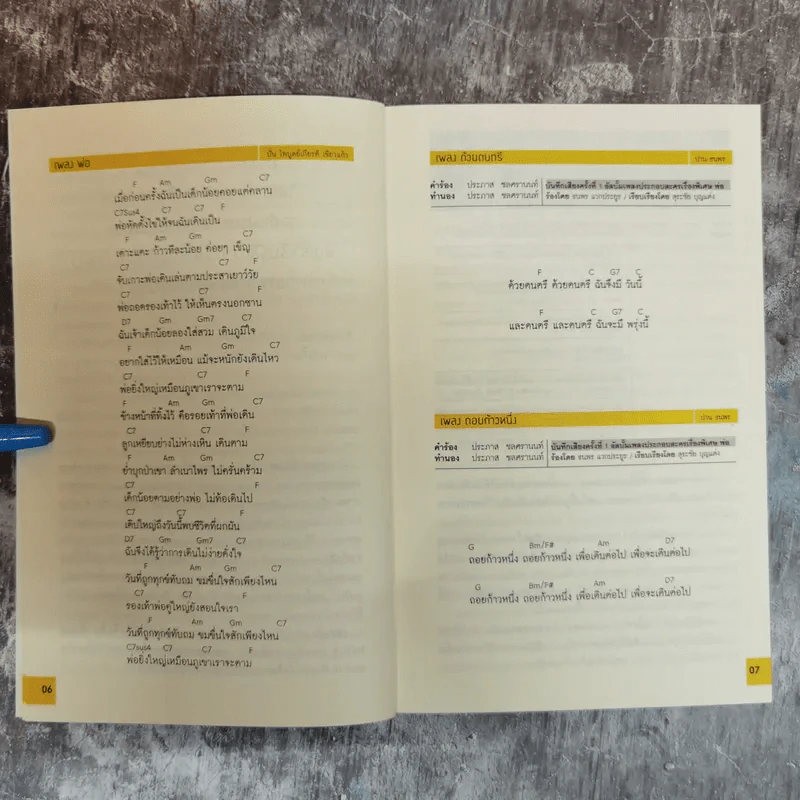 เพลง พ่อ
ปั่น ไพบูลย์เกียรติ เขียวแก้ว
F Am Gm C7
เมื่อก่อนครั้งฉันเป็นเด็กน้อยคอยแต่คลาน
C7Sus4 C7 C7 F
พ่อหัดตั้งไข่ให้จนฉันเดินเป็น
F Am Gm C7
เตาะแตะ ก้าวทีละน้อย ค่อยๆ เข็ญ
C7 C7 F
จับเกาะพ่อเดินเล่นตามประสาเยาว์วัย
C7 C7 F
พ่อถอดรองเท้าไว้ ให้เห็นตรงนอกชาน
D7 Gm Gm7 C7
ฉันเจ้าเด็กน้อยลองใส่สวม เดินภูมิใจ
F Am Gm C7
อยากใส่ไว้ให้เหมือน แม้จะหนักยังเดินไหว
C7 C7 F
พ่อยิ่งใหญ่เหมือนภูเขาเราจะตาม
F Am Gm C7
ข้างหน้าที่ทิ้งไว้ คือรอยเท้าที่พ่อเดิน
C7 C7 F
ลูกเหยียบย่างไม่ห่างเหิน เดินตาม
F Am Gm C7
ย่ำบุกป่าเขา ลำเนาไพร ไม่ครั่นคร้าม
C7 F
เด็กน้อยตามอย่างพ่อ ไม่ท้อเดินไป
C7 C7 F
เติบใหญ่ถึงวันนี้พบชีวิตที่ผกผัน
D7 Gm Gm7 C7
ฉันจึงได้รู้ว่าการเดินไม่ง่ายดั่งใจ
F Am Gm C7
วันที่ถูกทุกข์ทับถม ขมขื่นใจสักเพียงไหน
C7 C7 F
รองเท้าพ่อคู่ใหญ่ยังสอนใจเรา
F Am Gm C7
วันที่ถูกทุกข์ทับถม ขมขื่นใจสักเพียงไหน
C7sus4 C7 C7 F
พ่อยิ่งใหญ่เหมือนภูเขาเราจะตาม
06
เพลง ด้วยดนตรี
ปาน ธนพร
คำร้อง ประภาส ชลศรานนท์ บันทึกเสียงครั้งที่ 1 อัลบั้มเพลงประกอบละครเรื่องพิเศษ พ่อ
ทำนอง ประภาส ชลศรานนท์ ร้องโดย ธนพร แวกประยูร / เรียบเรียงโดย สุระชัย บุญแต่ง
F C G7 C
ด้วยดนตรี ด้วยดนตรี ฉันจึงมี วันนี้
F C G7 C
และดนตรี และดนตรี ฉันจะมี พรุ่งนี้
เพลง ถอยก้าวหนึ่ง
ปาน ธนพร
คำร้อง ประภาส ชลศรานนท์ บันทึกเสียงครั้งที่ 1 อัลบั้มเพลงประกอบละครเรื่องพิเศษ พ่อ
ทำนอง ประภาส ชลศรานนท์ ร้องโดย ธนพร แวกประยูร / เรียบเรียงโดย สุระชัย บุญแต่ง
G Bm/F# Am D7
ถอยก้าวหนึ่ง ถอยก้าวหนึ่ง เพื่อเดินต่อไป เพื่อจะเดินต่อไป
G Bm/F# Am D7
ถอยก้าวหนึ่ง ถอยก้าวหนึ่ง เพื่อเดินต่อไป เพื่อจะเดินต่อไป
07